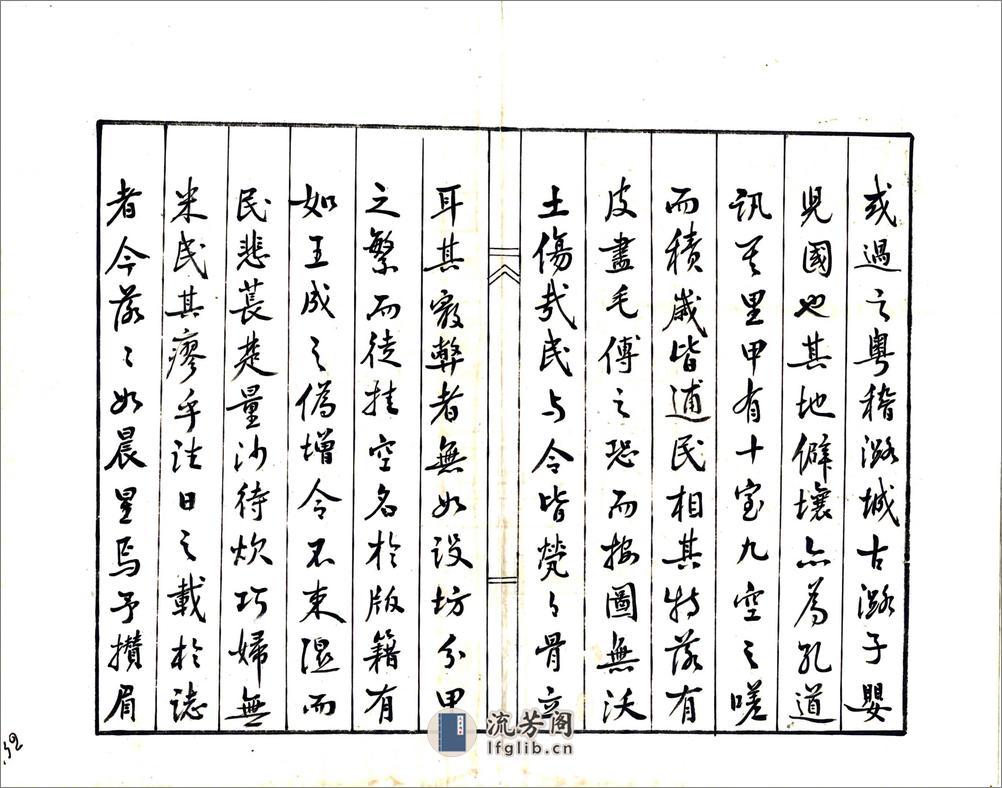 或過之粵稽潞城古潞子嬰
児國也其地僻壤亦為孔道
訊其里甲有十室九空之嗟
而積歲皆逋民相其特落有
皮盡毛傅之恐而按圖無沃
土傷哉民与令皆煢々骨立
耳其最弊者無如設坊分甲
之繁而徒挂空名於版籍有
如王成之偽增令不束濕而
民悲萇楚量沙待炊巧婦無
米民其瘳乎往日之載於誌
者今落々如晨星焉予攢眉
流芳阁
lfglib.cn